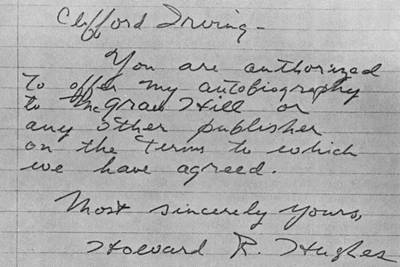 Clifford Irving -
You are authorized
to offer my autobiography
to McGraw Hill or
any other publisher
on the terms to which
we have agreed.
Most sincerely yours,
Howard R. Hughes